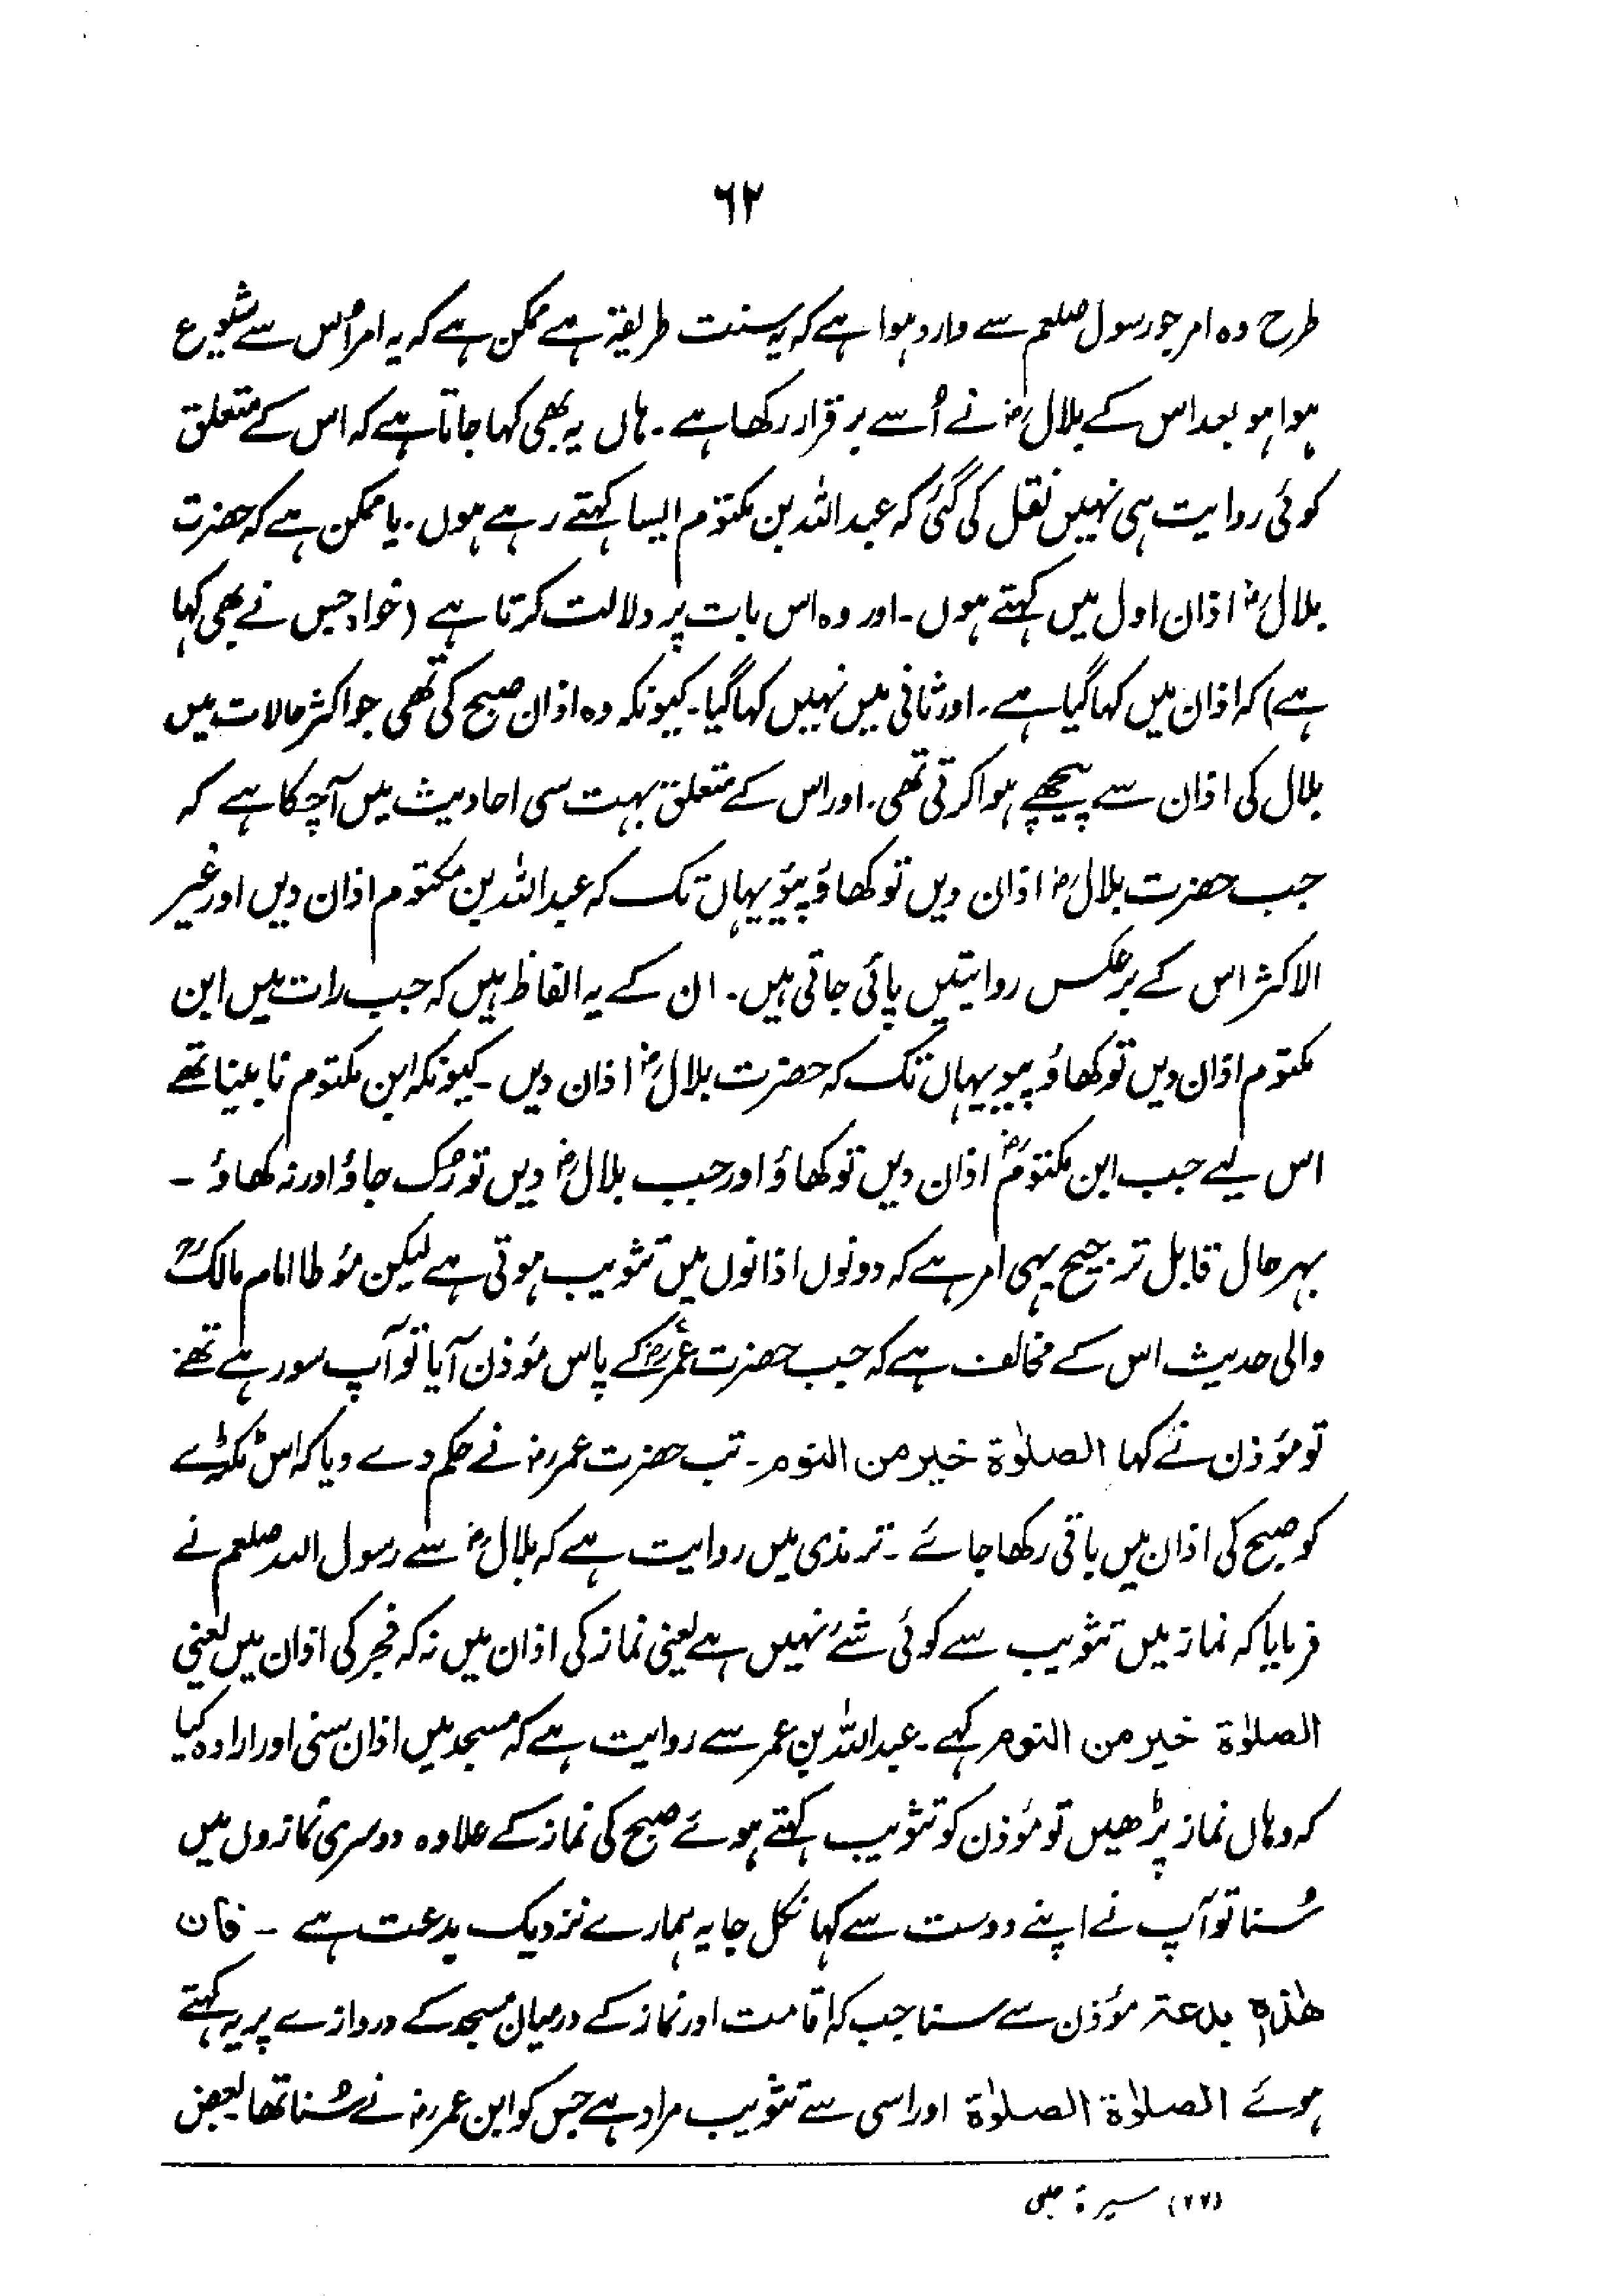 ۶۲
طرح وہ امر جو رسول صلعم سے وارد ہوا ہے کہ یہ سنت طریقہ ہے ممکن ہے کہ یہ امر اُس سے شیوع
ہوا ہو بعد اس کے بلالؓ نے اُسے برقرار رکھا ہے۔ ہاں یہ بھی کہا جاتا ہے کہ اس کے متعلق
کوئی روایت ہی نہیں نقل کی گئی کہ عبداللہ بن مکتوم ایسا کہتے رہے ہوں۔ یا ممکن ہے کہ حضرت
بلالؓ اذان اول میں کہتے ہوں۔ اور وہ اس بات پر دلالت کرتا ہے (خواہ جس نے بھی کہا
ہے) کہ اذان میں کہا گیا ہے۔ اور ثانی میں نہیں کہا گیا۔ کیونکہ وہ اذان صبح کی تھی جو اکثر حالات میں
بلال کی اذان سے پیچھے ہوا کرتی تھی۔ اور اس کے متعلق بہت سی احادیث میں آچکا ہے کہ
جب حضرت بلالؓ اذان دیں تو کھاؤ پیؤ یہاں تک کہ عبداللہ بن مکتوم اذان دیں اور غیر
الاکثر اس کے برعکس روایتیں پائی جاتی ہیں۔ ان کے یہ الفاظ ہیں کہ جب رات میں ابن
مکتوم اذان دیں تو کھاؤ پیو یہاں تک کہ حضرت بلالؓ اذان دیں۔ کیونکہ ابن مکتوم نابینا تھے
اس لیے جب ابن مکتومؓ اذان دیں تو کھاؤ اور جب بلالؓ دیں تو رُک جاؤ اور نہ کھاؤ۔
بہرحال قابل ترجیح یہی امر ہے کہ دونوں اذانوں میں تثویب ہوتی ہے لیکن مؤطا امام مالکؒ
والی حدیث اس کے مخالف ہے کہ جب حضرت عمرؓ کے پاس مؤذن آیا تو آپ سو رہے تھے
تو مؤذن نے کہا الصلوٰۃ خیر من النوم۔ تب حضرت عمرؓ نے حکم دے دیا کہ اس ٹکڑے
کو صبح کی اذان میں باقی رکھا جائے۔ ترمذی میں روایت ہے کہ بلالؓ سے رسول اللہ صلعم نے
فرمایا کہ نماز میں تثویب سے کوئی شئے نہیں ہے یعنی نماز کی اذان میں نہ کہ فجر کی اذان میں یعنی
الصلوٰۃ خیر من النوم کہے۔ عبداللہ بن عمر سے روایت ہے کہ مسجد میں اذان سنی اور ارادہ کیا
کہ وہاں نماز پڑھیں تو مؤذن کو تثویب کہتے ہوئے صبح کی نماز کے علاوہ دوسری نمازوں میں
سُنا تو آپ نے اپنے دوست سے کہا نکل جا یہ ہمارے نزدیک بدعت ہے۔ فان
ھٰذہٖ بدعۃ مؤذن سے سنا جب کہ اقامت اور نماز کے درمیان مسجد کے دروازے پر یہ کہتے
ہوئے الصلوٰۃ الصلوٰۃ اور اسی سے تثویب مراد ہے جس کو ابن عمرؓ نے سُنا تھا بعض
(۷۷) سیرۃ حلبی